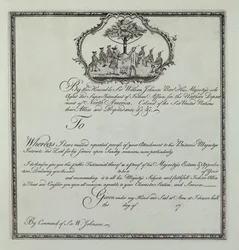 By the Honorable Sir William Johnson Bart. His Majesty's sole
Agent and Super Intendant of Indian Affairs for the Northern Depart-
ment of North America, Colonel of the Six United Nations
their Allies and Dependants &c. &c.
To
Whereas I have received repeated proofs of your Attachment to his Britannic Majesty's
Interests, and Zeal for his service upon sundry occasions, more particularly
I do therefore give you this public Testimonial thereof as a proof of his Majesty's Esteem & Approbation
Declaring you the said to be a of Your
and recommending it to all his Majesty's Subjects and faithfull Indian Allies
to Treat and Consider you upon all occasions agreable to your Character, Station, and Services
Given under my Hand and Seal at Arms at Johnson hall
the day of 17
By Command of Sir W: Johnson